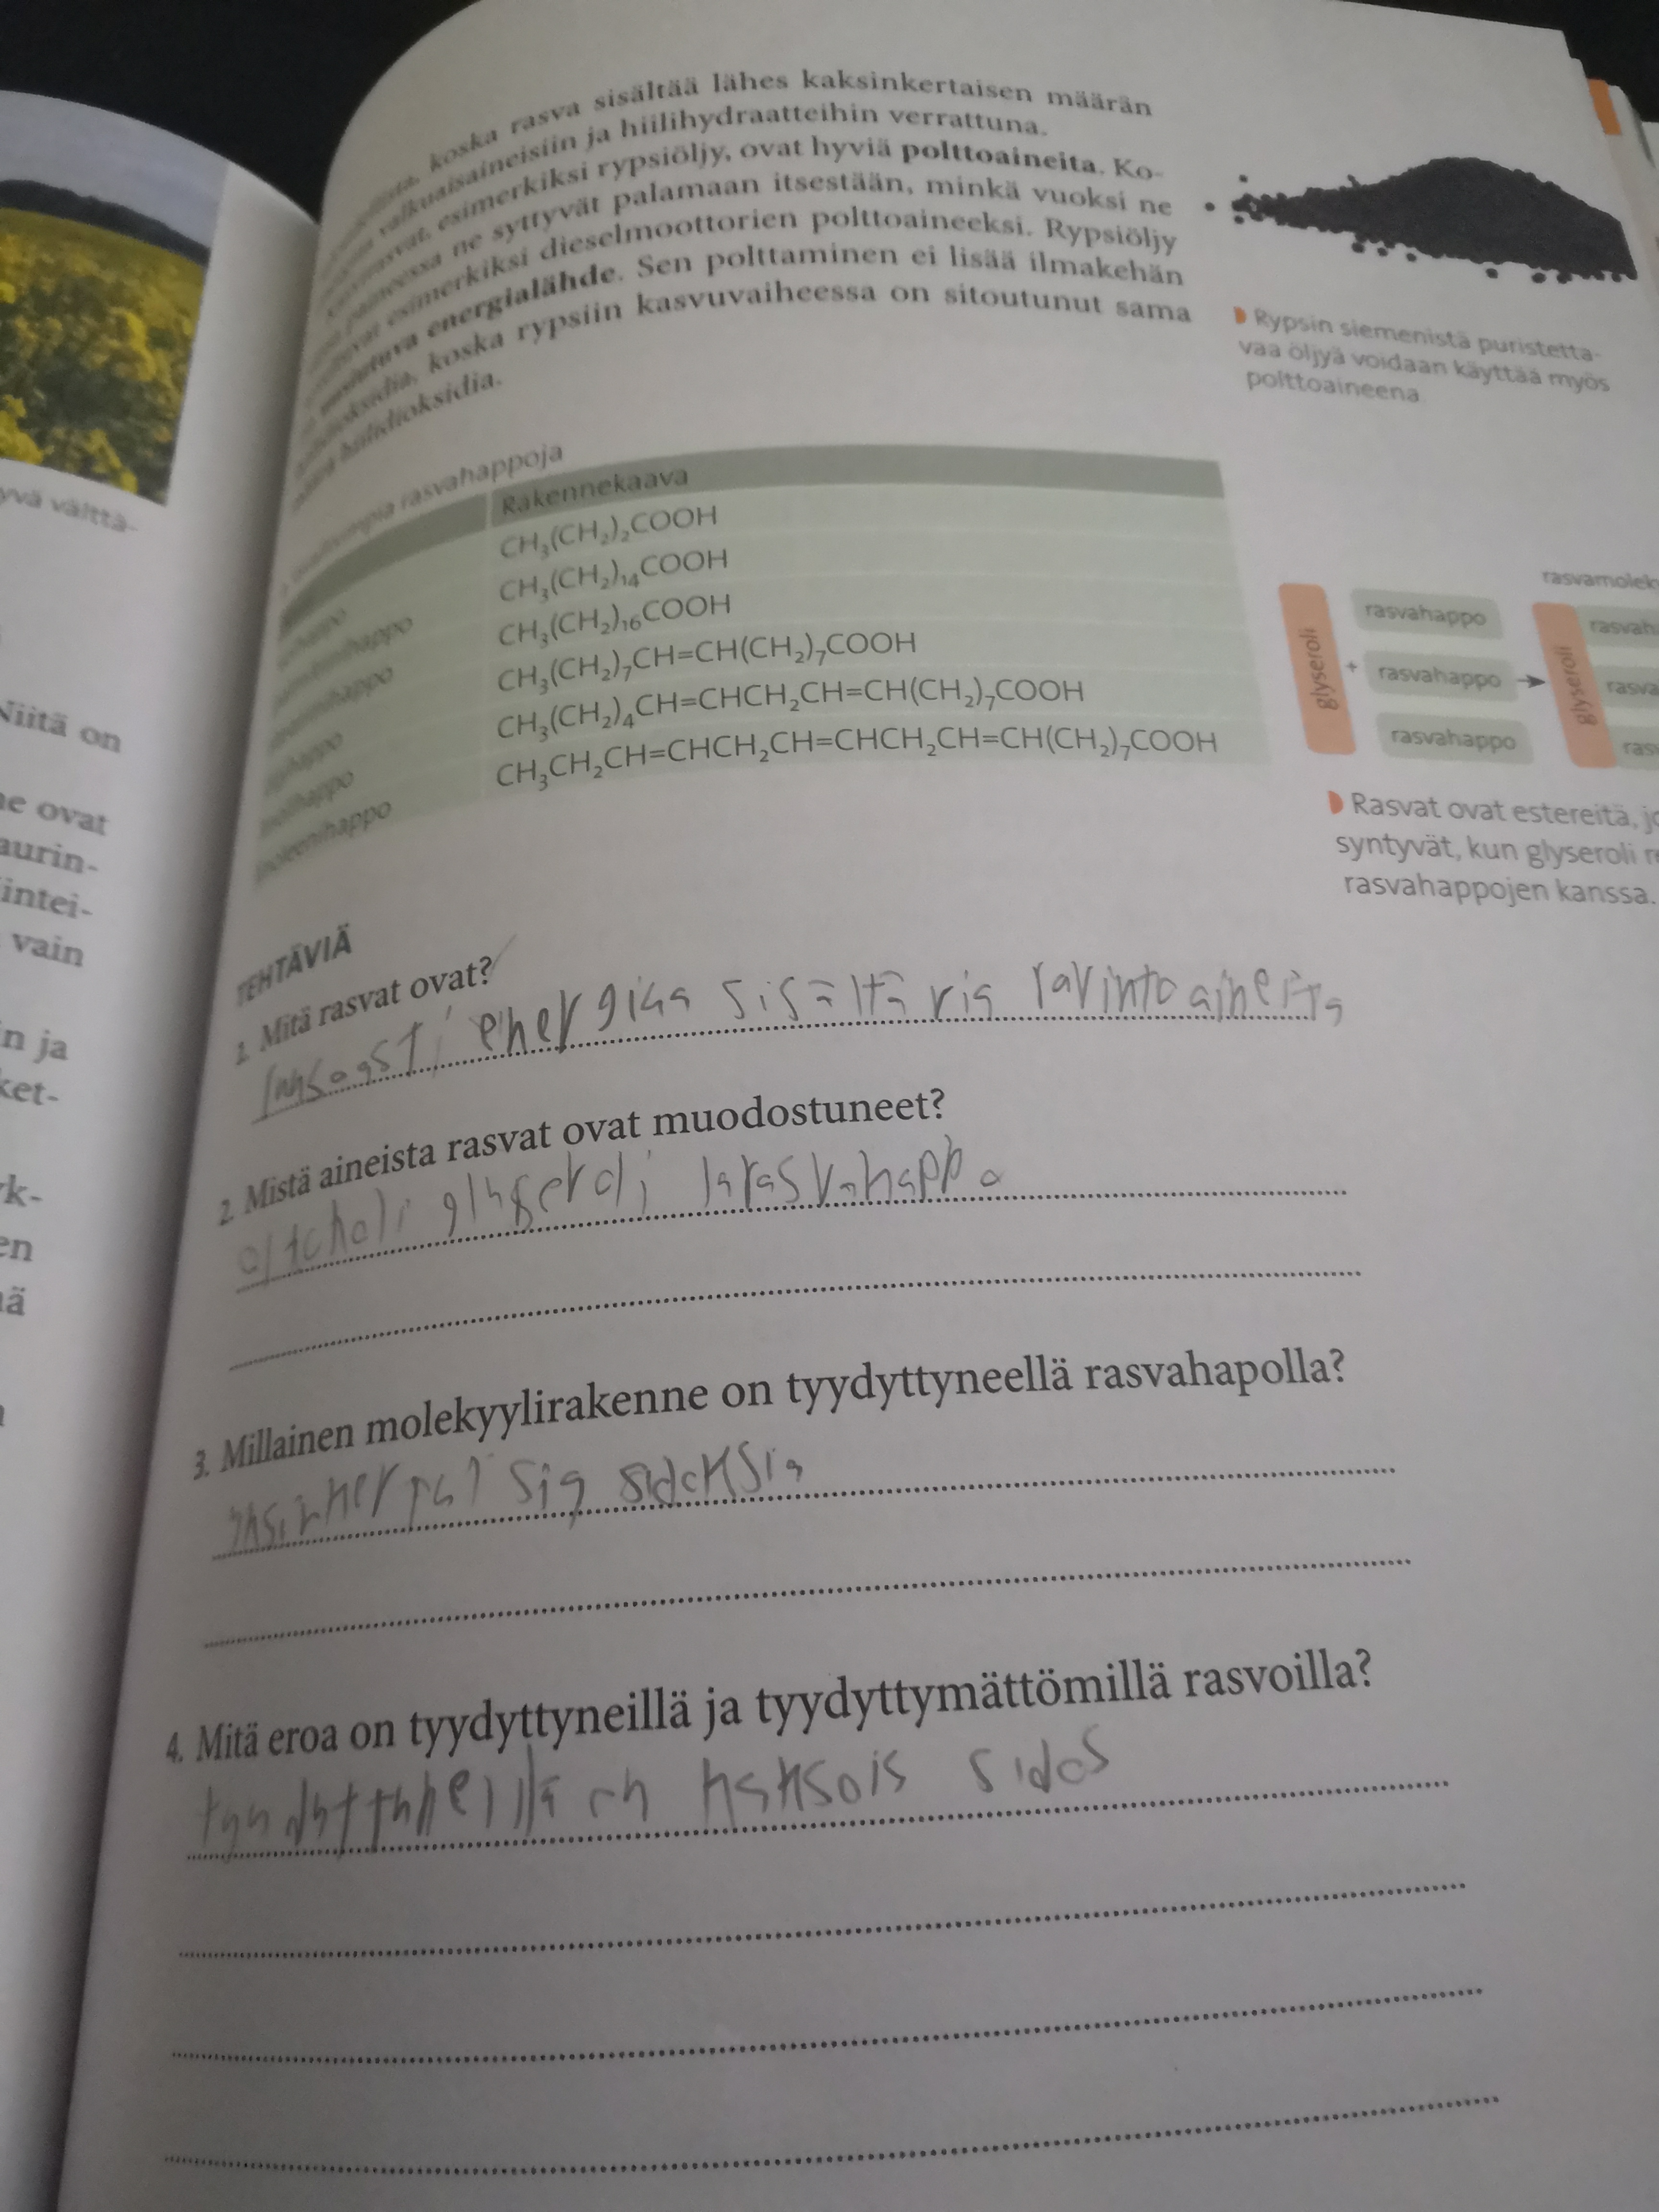 koska rasva sisältää lähes kaksinkertaisen määrän
valkuaisaineisiin ja hiilihydraatteihin verrattuna.
esimerkiksi rypsiöljy, ovat hyviä polttoaineita. Ko-
paineessa ne syttyvät palamaan itsestään, minkä vuoksi ne
esimerkiksi dieselmoottorien polttoaineeksi. Rypsiöljy
uusiutuva energialähde. Sen polttaminen ei lisää ilmakehän
koska rypsiin kasvuvaiheessa on sitoutunut sama
määrä hiilidioksidia.
Rypsin siemenistä puristetta-
vaa öljyä voidaan käyttää myös
polttoaineena
yvä vältta-
Niitä on
ne ovat
aurin-
intei-
vain
n ja
ket-
yk-
en
ä
rasvahappoja
Rakennekaava
CH₃(CH₂)₂COOH
CH₃(CH₂)₁₄COOH
CH₃(CH₂)₁₆COOH
CH₃(CH₂)₇CH=CH(CH₂)₇COOH
CH₃(CH₂)₄CH=CHCH₂CH=CH(CH₂)₇COOH
linoleenihappo CH₃CH₂CH=CHCH₂CH=CHCH₂CH=CH(CH₂)₇COOH
rasvamolek
glyseroli + rasvahappo → glyseroli rasvah
rasvahappo rasva
rasvahappo ras
Rasvat ovat estereitä, jo
syntyvät, kun glyseroli re
rasvahappojen kanssa.
TEHTÄVIÄ
1. Mitä rasvat ovat?
energiaa sisältäviä ravintoaineita
2. Mistä aineista rasvat ovat muodostuneet?
alkoholi glyseroli ja rasvahappo
3. Millainen molekyylirakenne on tyydyttyneellä rasvahapolla?
sidoksia
4. Mitä eroa on tyydyttyneillä ja tyydyttymättömillä rasvoilla?
tyydyttyneillä on kaksois sidos